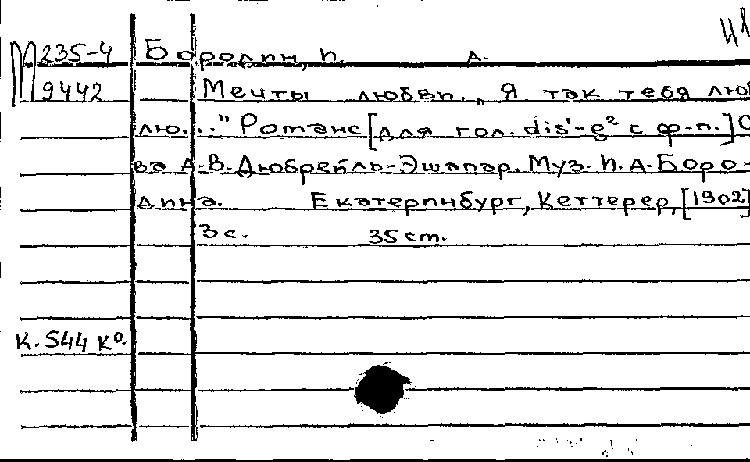 41
М 235-4 Бородин, П. А.
9442 Мечты любви. „Я так тебя люб
лю..." Романс [для гол. dis'-g² с ф-п.] С
ва А.В. Дюбрейль-Эшапар. Муз. П.А. Боро-
дина. Екатеринбург, Кеттерер, [1902]
3 с. 35 cm.
К. 544 К⁰.